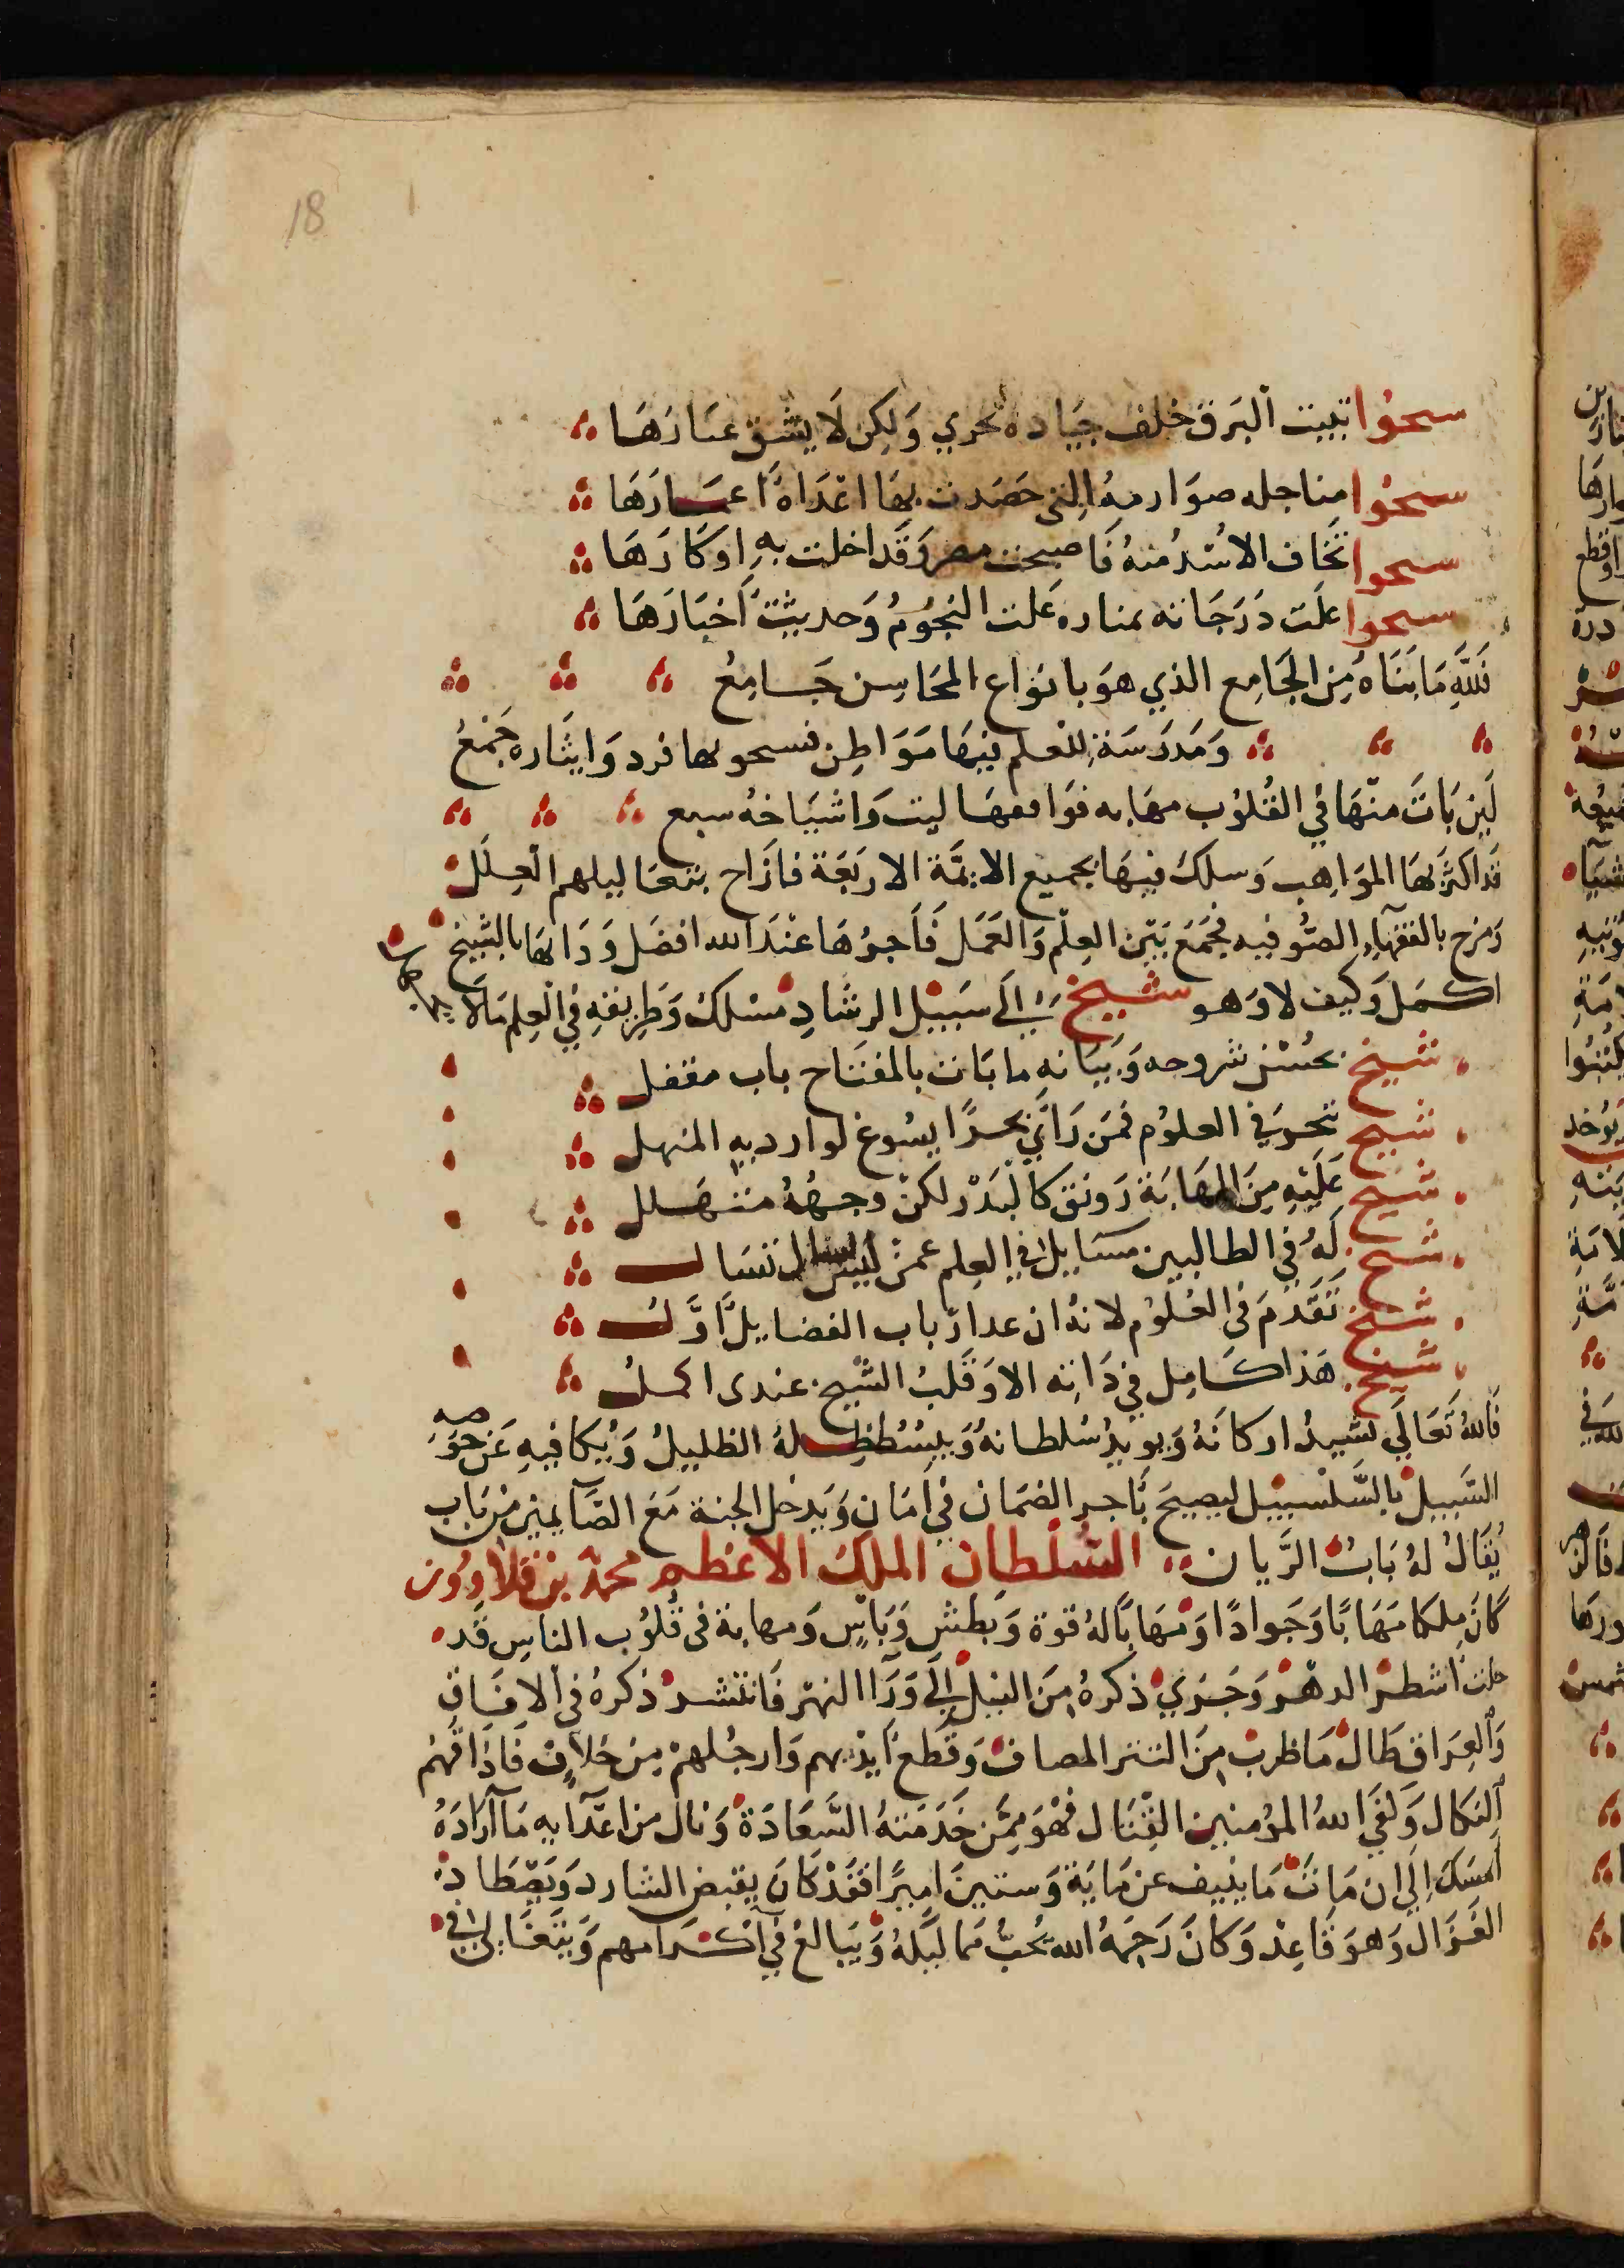 18
سحوا تبيت البرق خلف جياده تجري وَلكِن لَا يشق عبَارَهَا
سحوا مناجله صوَارمهُ التي حَصَدت بهَا اعْدَاهُ اعمَارَهَا
سحوا تخَاف الاسُد مُنهُ فَاصبحت مصر وَقَد اخلت بهِ اوكَارَهَا
سحوا علَت دَرَجَاته بمناره عَلت النجُومُ وَحديثت اَخبَارَهَا
فَللَّهِ مَا بنَاهُ مِنَ الجَامِع الذي هوَ بانوَاع المحَاسِن جَامِعُ
وَمَدرَسَة للعلم فيهَا مَوَاطِن فسحو بها فرد وَايثَاره جَمْعُ
لَين بَاتَ منهَا في القُلوُب مهَابه فوَاقعهَا ليت وَاشيَاخهُ سبع
قَد اكثرَ بهَا الموَاهِب وَسلك فيهَا بجميع الايمَّة الاربَعَة فازَاح بتعَاليلهم العِلَل
وَمزج بالفقهآءِ الصُوفيه فجمَعَ بَين العِلْم وَالعَمَل فَاَجرُهَا عنْدَ الله افضَل وَدَابهَا بالشيخ
اكمَل وَكيف لا وَهو شيخ إلَى سَبيل الرشَادِ مسْلكُ وَطَرِيقهِ في العِلم مَالَا
شيخ بحُسْن شروحه وَبيَانهِ ما بَات بالمفتَاح باب مقفل
شيخ تبحرَ في العلوُم فمَن رَاَي بحرًا يسُوغ لوارديهِ المنهل
شيخ عَلَيْهِ مِنَ المهَابَة رَونق كالْبَدْر لكنْ وجهُهُ متهَلل
شيخ لَهُ في الطالبين مسَايل في العِلم عمنْ ليس تسَال
شيخ تَقَدمَ في العُلوُم لانهُ ان عد ارْباب الفضايل اَوَّلُ
شيخ هَذا كَامِل في ذَاته الا وَقَلبُ الشيخ عندى اكملُ
فَاللهُ تَعَالَي يشيدُ اركانَهُ وَيويدُ سُلطانهُ وَيبسُط ظِلهُ الظليلُ وَيُكافيهِ عَن حوَضِهِ
السَّبيل بالسَّلسبيل ليصِيحَ بَاجر الضمَان في اَمَان وَيَدخل الجنة مَعَ الصَّآيمين مِنْ بَاب
يُقَالُ لهُ بَابُ الرَّيان السُلطان الملك الاعظم محمدْ بن قلاوُون
كَانَ مِلكا مَهَابًا وَجَوادًا وَمهَابًا لهُ قوة وَبَطش وَبَاس وَمهابة في قُلوُب الناس قَد
حلبَ اشطر الدهْر وَجَرَي ذكرهُ مِنَ النيل إلَى وَرَآا النهر فَانتشر ذكرهُ في الافَاق
وَالعِرَاق طَالْ مَا ظربْ مِنَ التتر المصاف وَقَطعَ اَيدْيهم وَارجُلهمْ مِنْ خلَافْ فَاذَاقهُمْ
النكال وَلقَي اللهُ المؤمنين القتَال فهْوَ مِمَّن خَدَمَتهُ السَّعَادَة وَنال من اعدَآيهِ مَا اَرَادَهُ
اَمسَكَ إلَي ان مَاتَ مَا ينيف عن مَايَة وَستينَ اميرًا فقَدْ كَانَ يقبض الشارد وَيَصْطَاد
الغَزال وَهوَ قَاعِدْ وَكانَ رَحِمَهُ الله يحُبُ ممالَيكهُ وَيبَالغ في اكرَامهم وَيتغَالي في